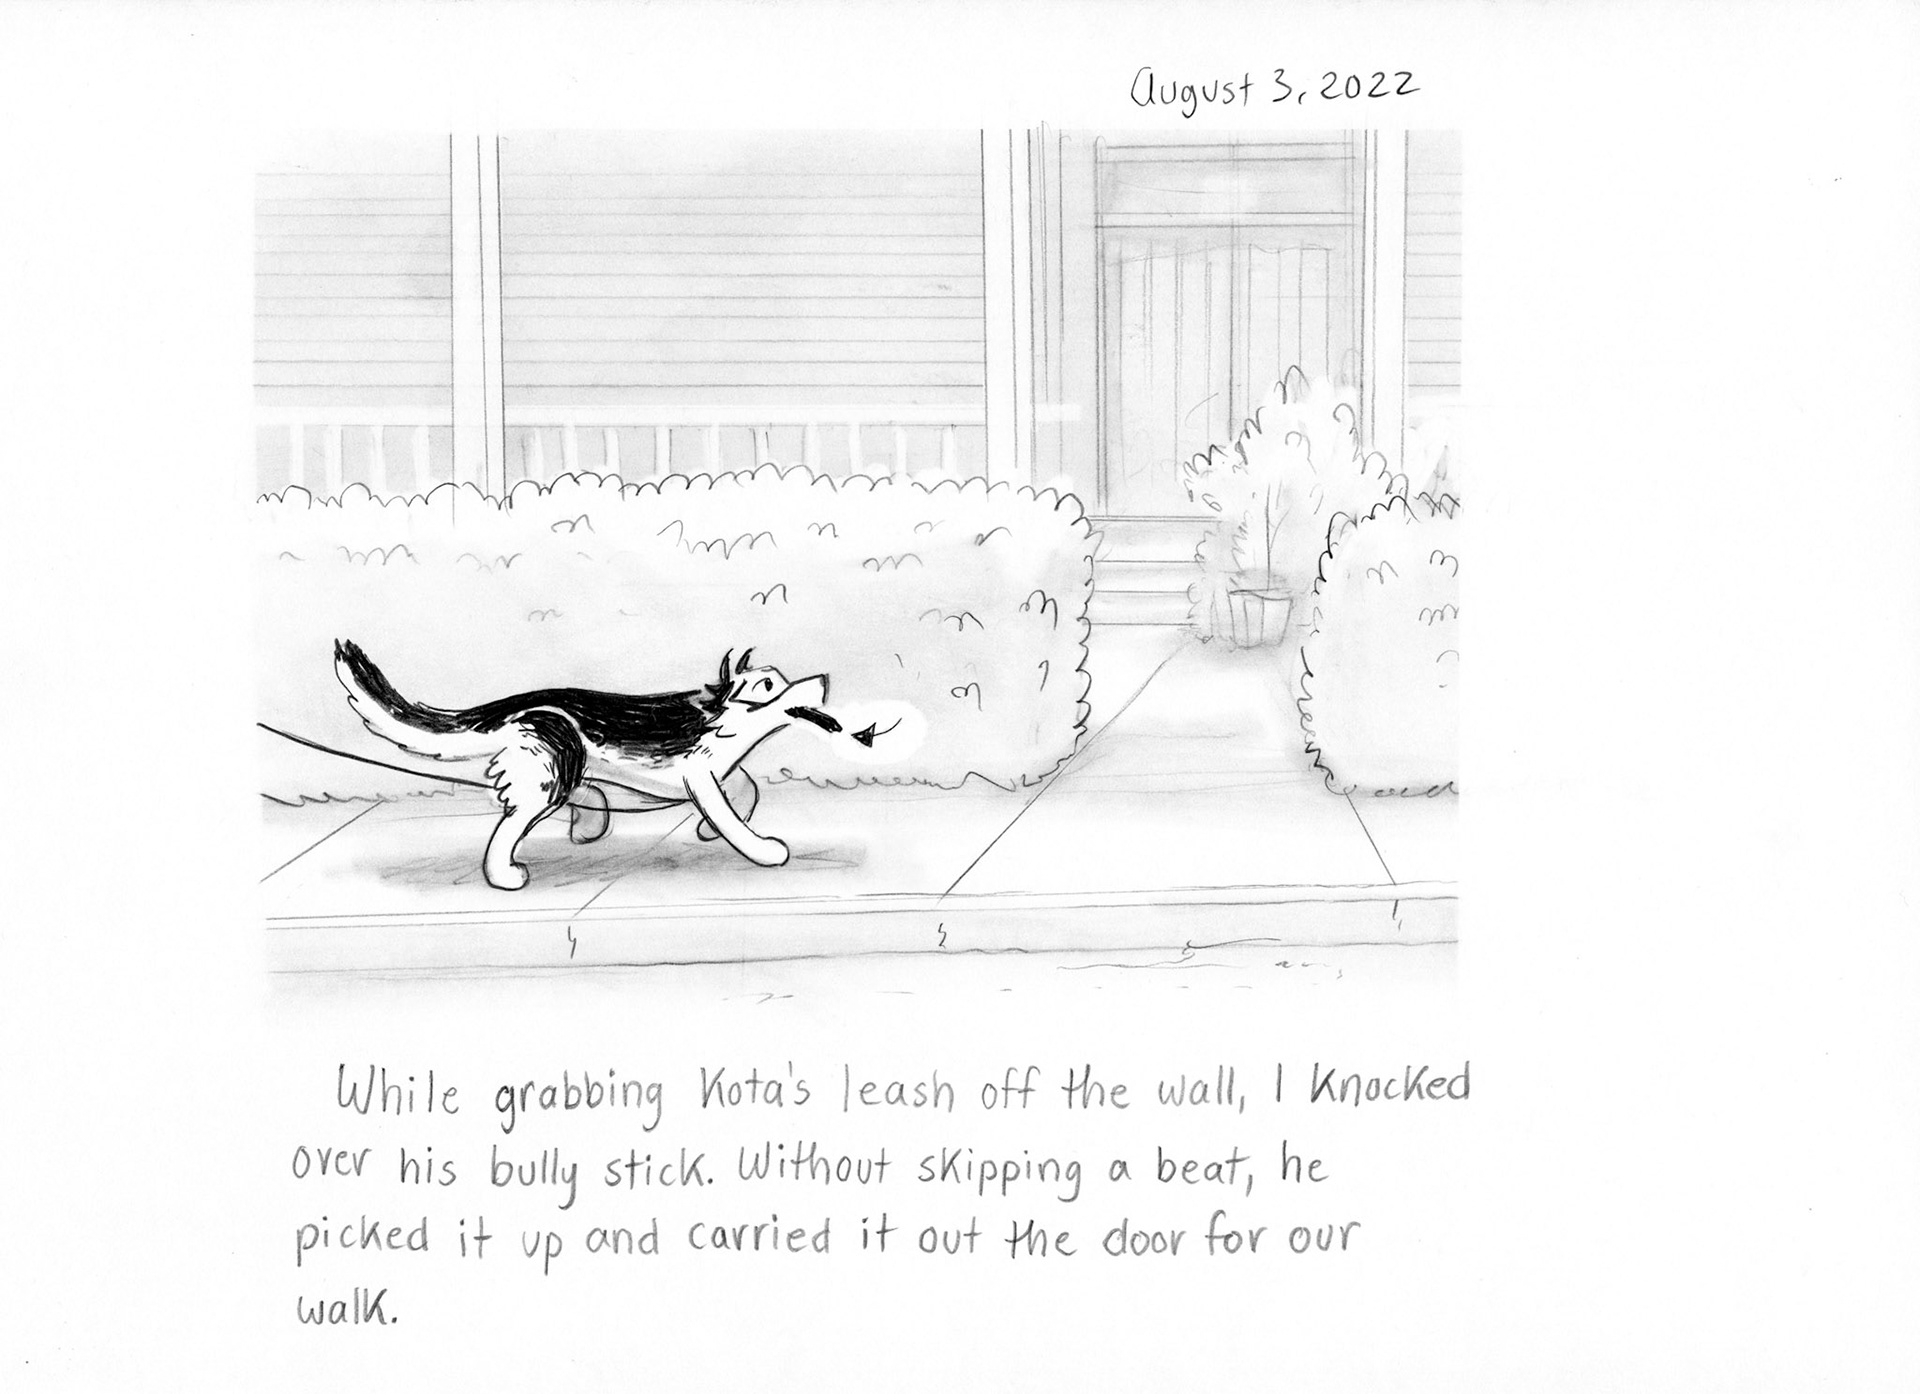 August 3, 2022
While grabbing Kota's leash off the wall, I knocked
over his bully stick. Without skipping a beat, he
picked it up and carried it out the door for our
walk.